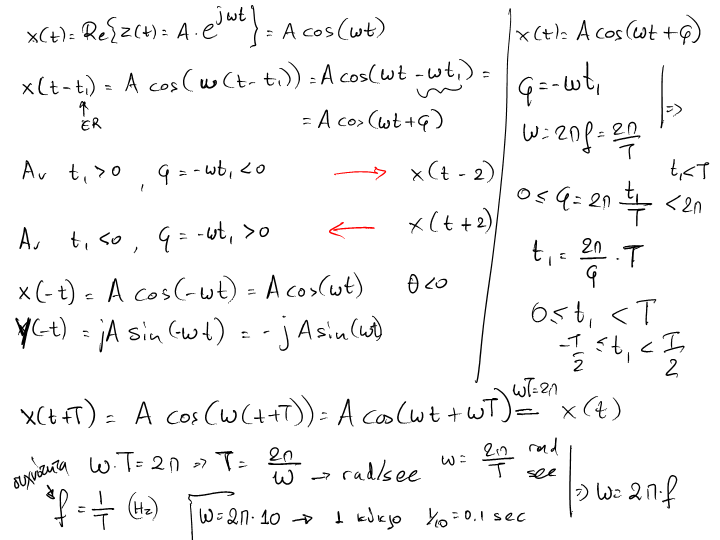 x(t) = Re{z(t) = A · e^{jωt}} = A cos(ωt)
x(t-t₁) = A cos(ω(t-t₁)) = A cos(ωt - ωt₁) =
↑
∈R
= A cos(ωt+φ)
Αν t₁ > 0 , φ = -ωt₁ < 0 → x(t-2)
Αν t₁ < 0 , φ = -ωt₁ > 0 ← x(t+2)
x(-t) = A cos(-ωt) = A cos(ωt) θ<0
y(-t) = jA sin(-ωt) = -jA sin(ωt)
x(t) = A cos(ωt+φ)
φ = -ωt₁
ω = 2πf = 2π/T | =>
t₁<T
0 ≤ φ = 2π t₁/T < 2π
t₁ = 2π/φ · T
0 ≤ t₁ < T
-T/2 ≤ t₁ < T/2
x(t+T) = A cos(ω(t+T)) = A cos(ωt + ωT) = x(t)
ωT=2π
συχνότητα ω·T = 2π => T = 2π/ω → rad/sec ω = 2π/T rad/sec
f = 1/T (Hz) ω = 2π·10 → 1 κύκλο 1/10 = 0.1 sec | => ω = 2π·f